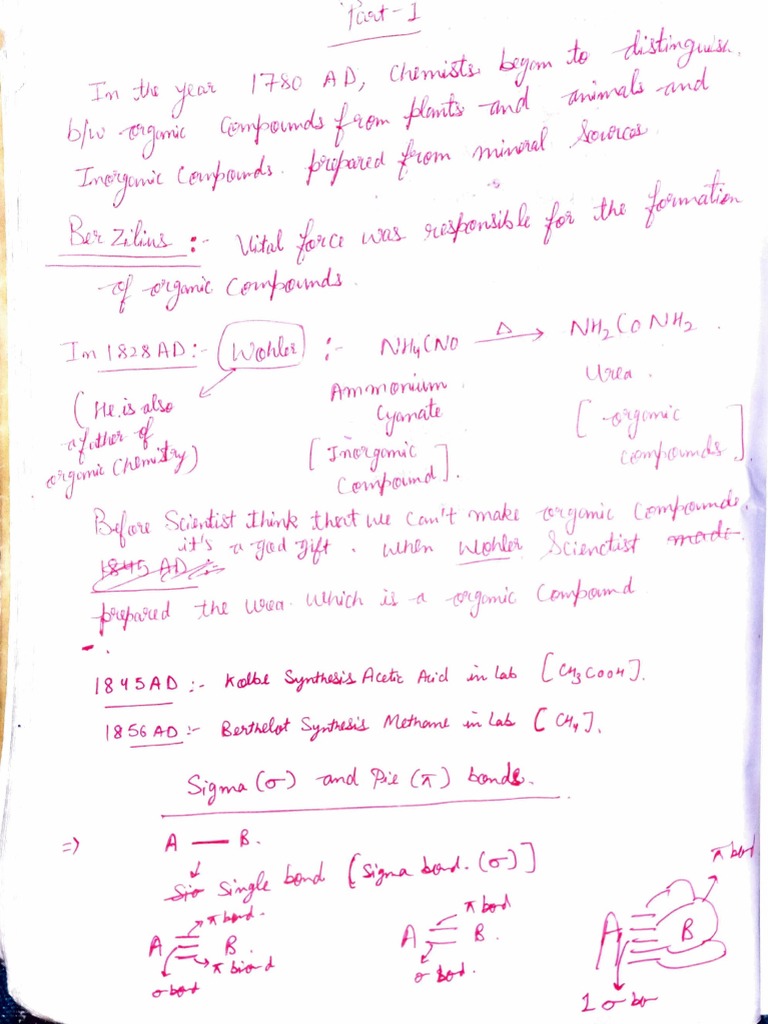 Part-I
In the year 1780 AD, Chemists began to distinguish
b/w organic Compounds from plants and animals and
Inorganic Compounds. prepared from mineral Sources
Berzilius :- Vital force was responsible for the formation
of organic Compounds.
In 1828 AD:- Wohler :- NH4CNO Δ → NH2CoNH2.
(He is also a father of organic Chemistry)
Ammonium Cyanate
[Inorganic Compound].
Urea.
[organic compounds].
Before Scientist think that we can't make organic Compounds.
it's a god gift. when Wohler Scienctist made
1845 AD :-
prepared the urea. Which is a organic Compound
1845AD :- Kolbe Synthesis Acetic Acid in Lab [CH3COOH].
1856 AD:- Berthelot Synthesis Methane in Lab [CH4].
Sigma (σ) and Pie (π) bonds.
⇒ A — B.
Single bond [Sigma bond. (σ)]
π bond.
A ≡ B.
π biond
σ bod
π bod
A = B.
σ bod.
π bod
A B
1 σ bo